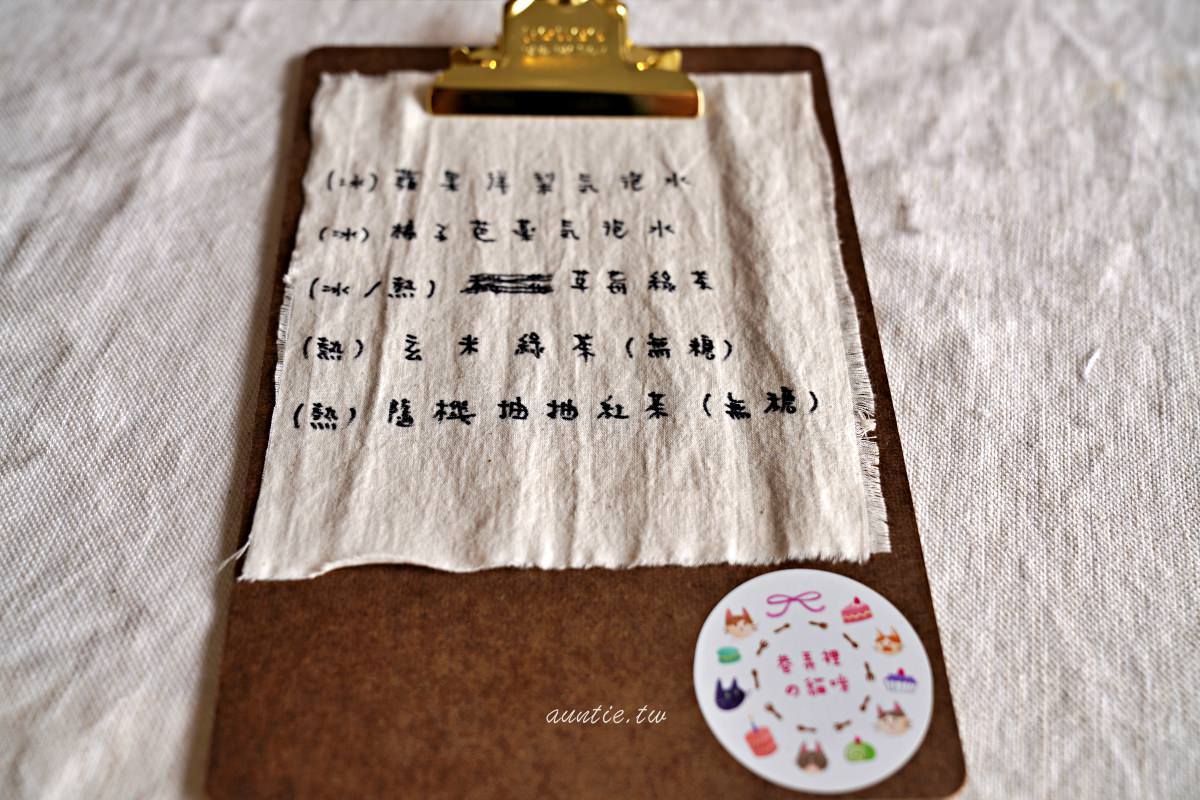 (冰) 蘋果洋梨気泡水
(冰) 橘子芭薹気泡水
(冰/熱) 草莓綠茶
(熱) 玄米綠茶 (無糖)
(熱) 隨機抽抽紅茶 (無糖)
巷弄裡
の貓咪
auntie.tw